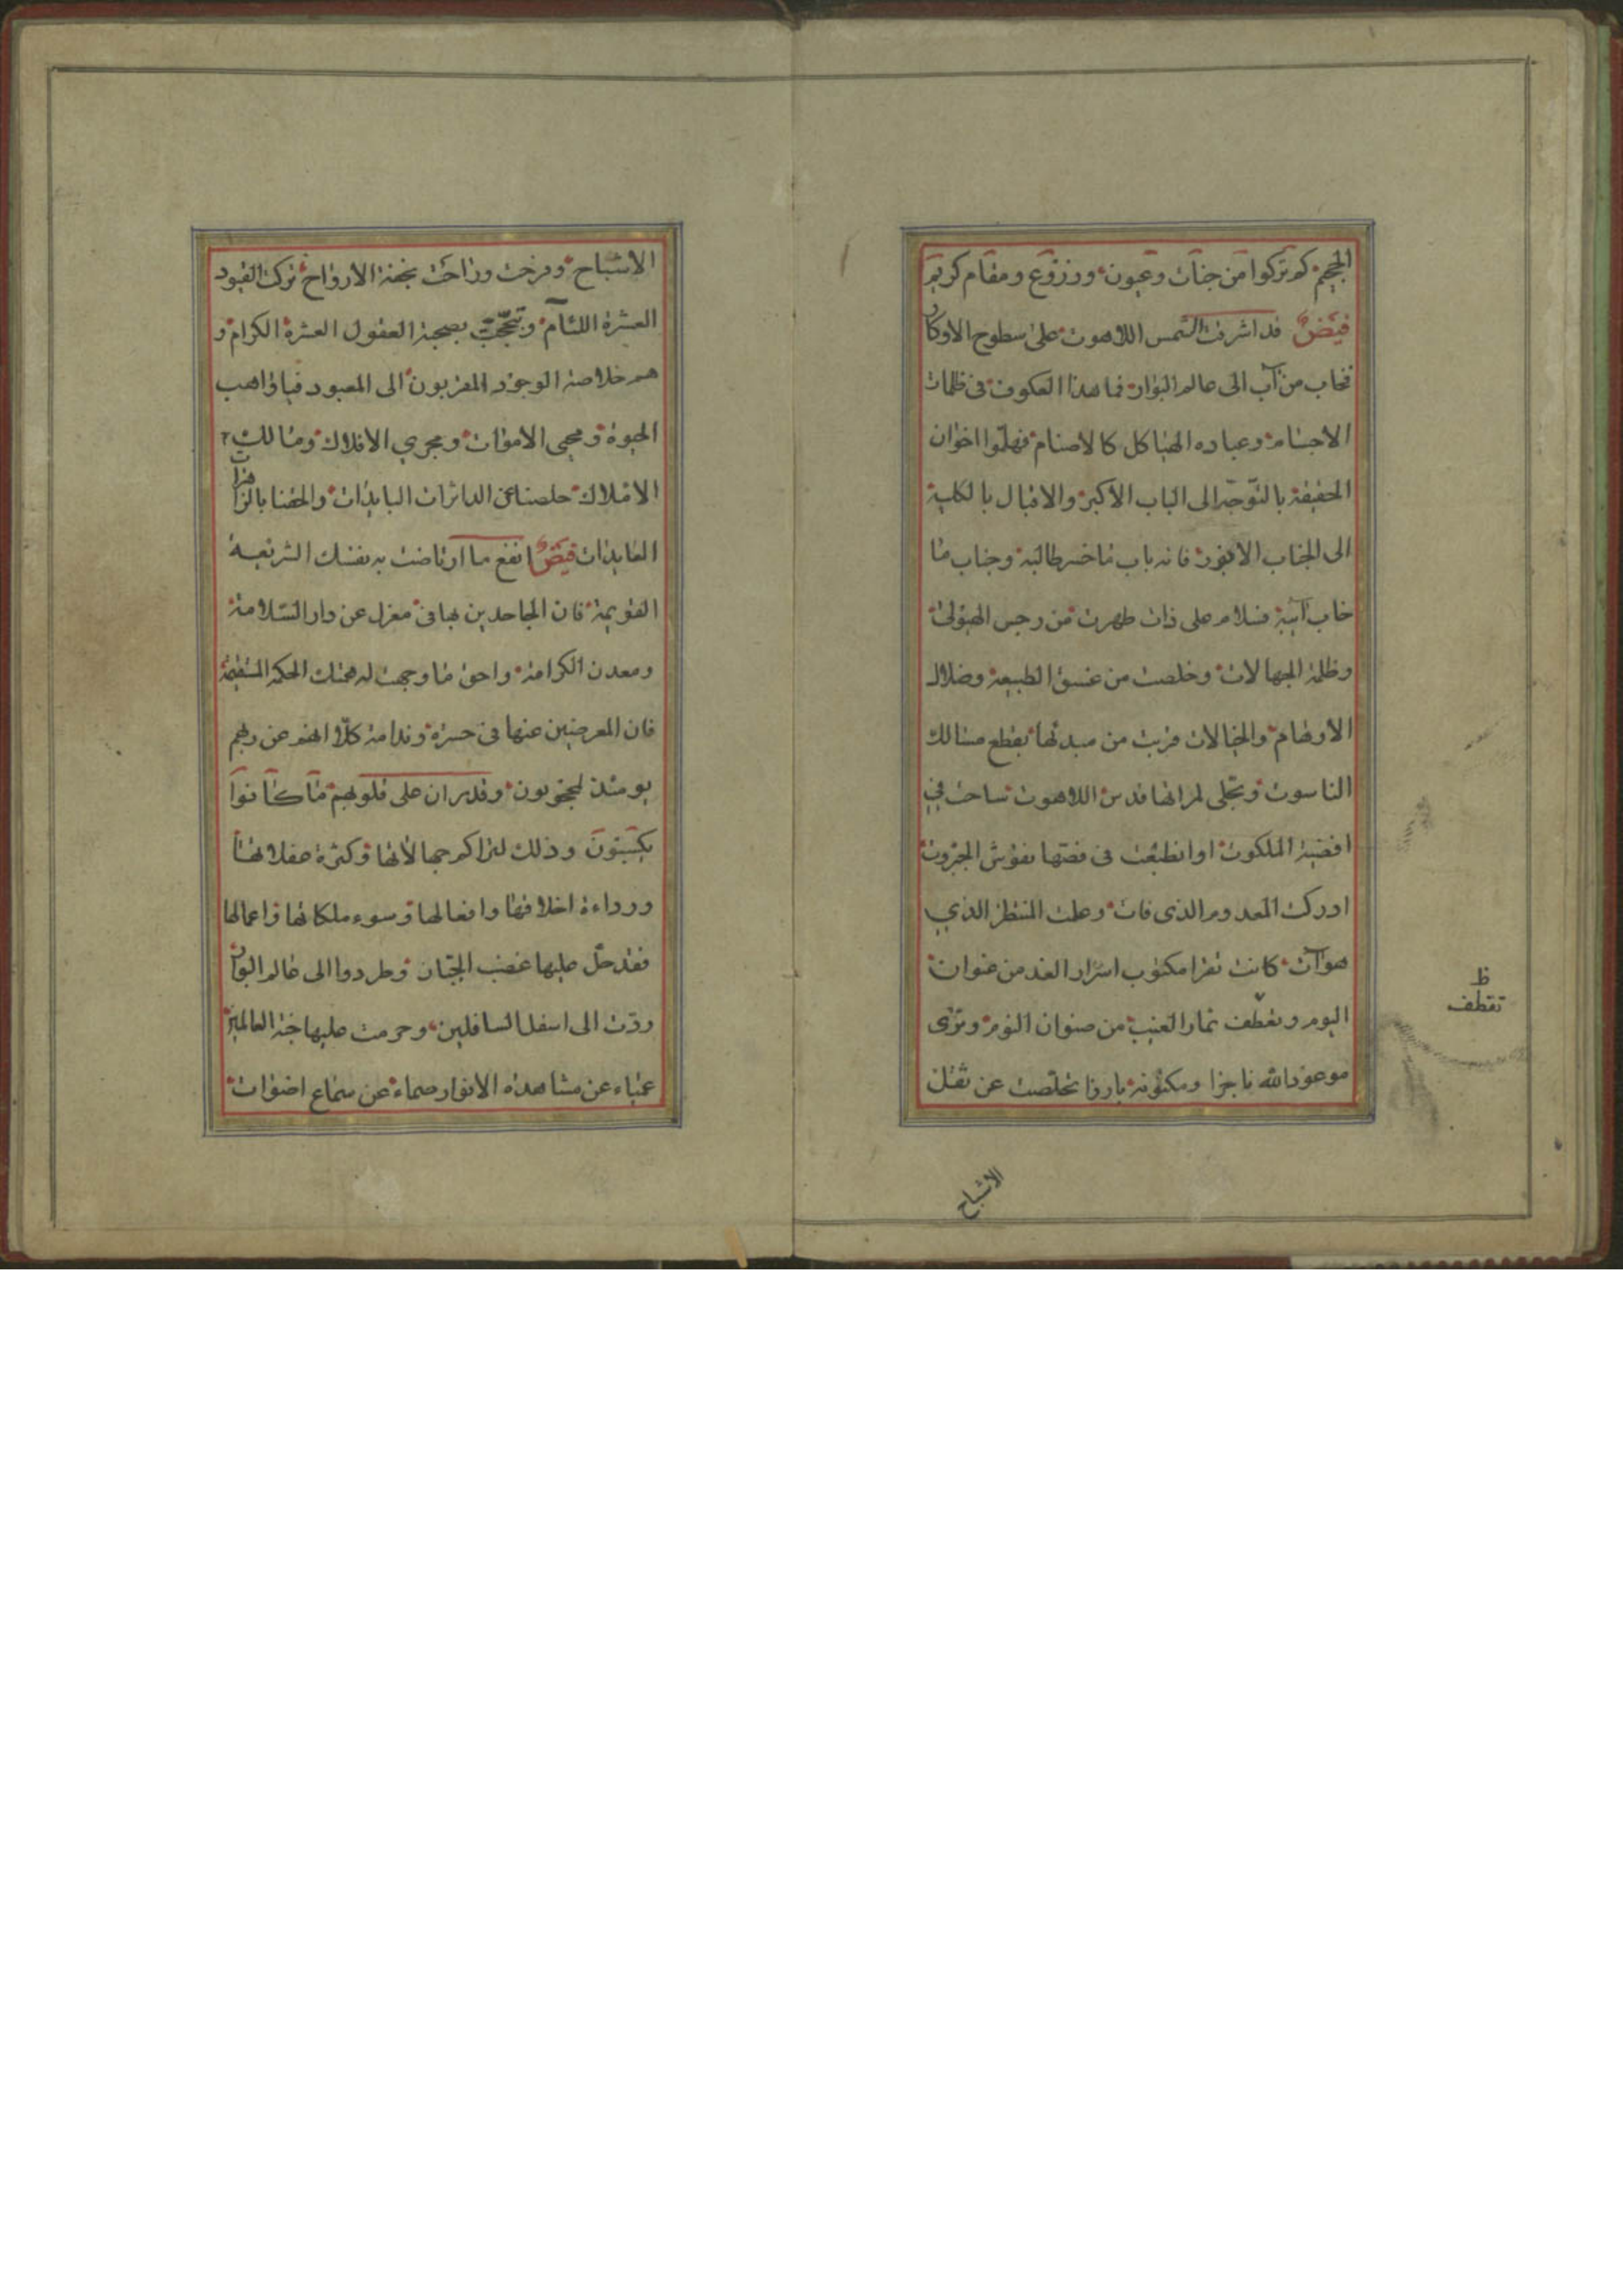 الجحيم كم تركوا من جنات وعيون وزروع ومقام كريم
فيض قد اشرقت الشمس اللاهوت على سطوح الاوكار
فخاب من آب الى عالم البوار فما هذا العكوف فى ظلمات
الاجسام وعباده الهياكل كالاصنام فهلموا اخوان
الحقيقة بالتوجه الى الباب الاكبر والاقبال بالكلية
الى الجناب الانور فانه باب ما خسر طالبه وجناب ما
خاب آئبه فسلام على ذات طهرت من رجس الهيولى
وظلمة الجهالات وخلصت من غسق الطبيعة وضلال
الاوهام والخيالات قربت من مبدئها بقطع مسالك
الناسوت وتجلى لمراتها قدس اللاهوت ساحت فى
اقضية الملكوت او انطبعت فى فصها نقوش الجبروت
ادركت المعدوم الذى فات وعلمت المنتظر الذى
هو آت كانت تقرا مكتوب اسرار الغد من عنوان
اليوم وتقطف ثمار العنب من صنوان النوم وترى
موعود الله ناجزا ومكنونه بارزا تخلصت عن ثقل
ظ
تقطف
الاشباح
الاشباح وفرحت وراحت بخفة الارواح تركت القيود
العشرة اللئام و بصحبة العقول العشرة الكرام و
هم خلاصة الوجود المقربون الى المعبود فيا واهب
الحيوة ومحيى الاموات ومجرى الافلاك ومالك
الاملاك خلصنا عن الداثرات البايدات والحقنا بالزاهرات
العابدات فيض انفع ما ارتاضت به نفسك الشريعة
القويمة فان الجاحدين بها فى معزل عن دار السلامة
ومعدن الكرامة واحق ما وجهت له همتك الحكمة المستقيمة
فان المعرضين عنها فى حسرة وندامة كلا انهم عن ربهم
يومئذ لمحجوبون وقد ران على قلوبهم ما كانوا
يكسبون وذلك لتراكم جهالاتها وكثرة غفلاتها
ورداءة اخلاقها وافعالها وسوء ملكاتها واعمالها
فقد حل عليها غضب الجبار وطردوا الى عالم البوار
ردت الى اسفل السافلين وحرمت عليها جنة العالمين
عمياء عن مشاهدة الانوار صماء عن سماع اصوات